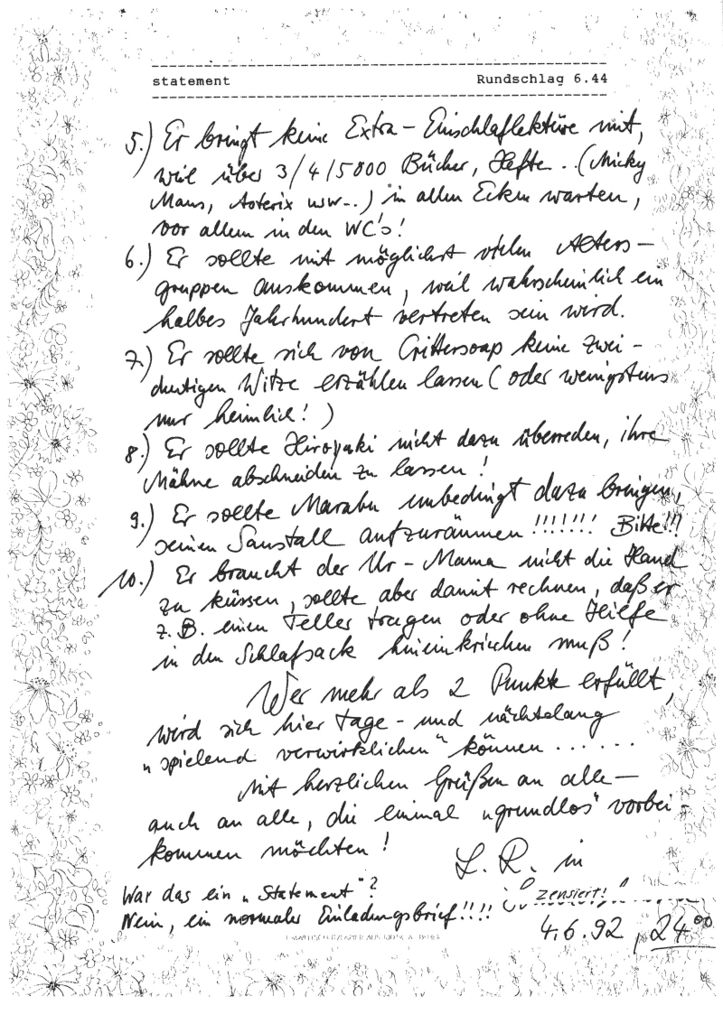 statement Rundschlag 6.44
5.) Er bringt keine Extra-Einschlaflektüre mit,
weil über 3/4/5000 Bücher, Hefte..(Micky
Maus, Asterix usw...) in allen Ecken warten,
vor allem in den WC's!
6.) Er sollte mit möglichst vielen Alters-
gruppen auskommen, weil wahrscheinlich ein
halbes Jahrhundert vertreten sein wird.
7.) Er sollte sich von Crittersoap keine zwei-
deutigen Witze erzählen lassen (oder wenigstens
nur heimlich!)
8.) Er sollte Hiroyuki nicht dazu überreden, ihre
Mähne abschneiden zu lassen!
9.) Er sollte Marabu unbedingt dazu bringen,
seinen Saustall aufzuräumen!!!!!!! Bitte!!!
10.) Er braucht der Ur-Mama nicht die Hand
zu küssen, sollte aber damit rechnen, daß er
z.B. einen Teller tragen oder ohne Hilfe
in den Schlafsack hineinkriechen muß!
Wer mehr als 2 Punkte erfüllt,
wird sich hier tage- und nächtelang
„spielend verwirklichen" können.......
Mit herzlichen Grüßen an alle-
auch an alle, die einmal „grundlos" vorbei-
kommen möchten!
L.R. in
zensiert!
War das ein „Statement"?
Nein, ein normaler Einladungsbrief!!!!
4.6.92, 24⁰⁰